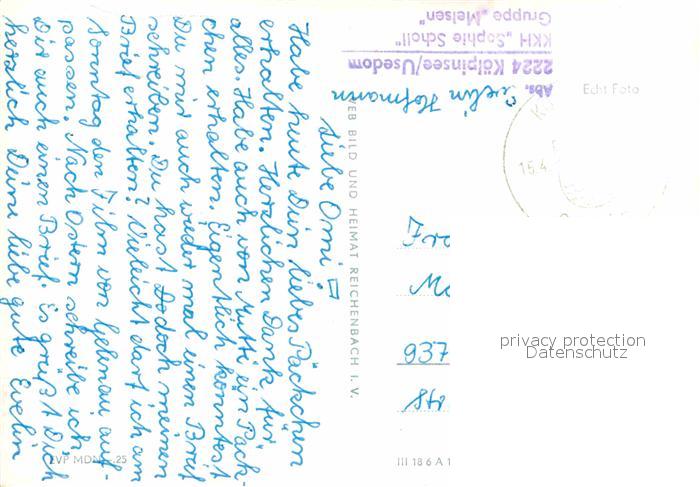 Liebe Omi!
Habe heute Dein liebes Päckchen
erhalten. Herzlichen Dank für
alles. Habe auch von Mutti ein Päck-
chen erhalten. Eigentlich könntest
Du mir auch wieder mal einen Brief
schreiben. Du hast Dodoch meinen
Brief erhalten? Vieleicht darf ich am
Sonntag den Film von Gelenau auf-
passen. Nach Ostern schreibe ich
Dir auch einen Brief. Es grüßt Dich
herzlich Deine liebe gute Evelin
EVP MDN -.25
VEB BILD UND HEIMAT REICHENBACH I. V.
Abs. Evelin Hofmann
2224 Kölpinsee/Usedom
KKH „Sophie Scholl"
Gruppe „Meisen"
Echt Foto
15.4
937
III 18 6 A 1
privacy protection
Datenschutz